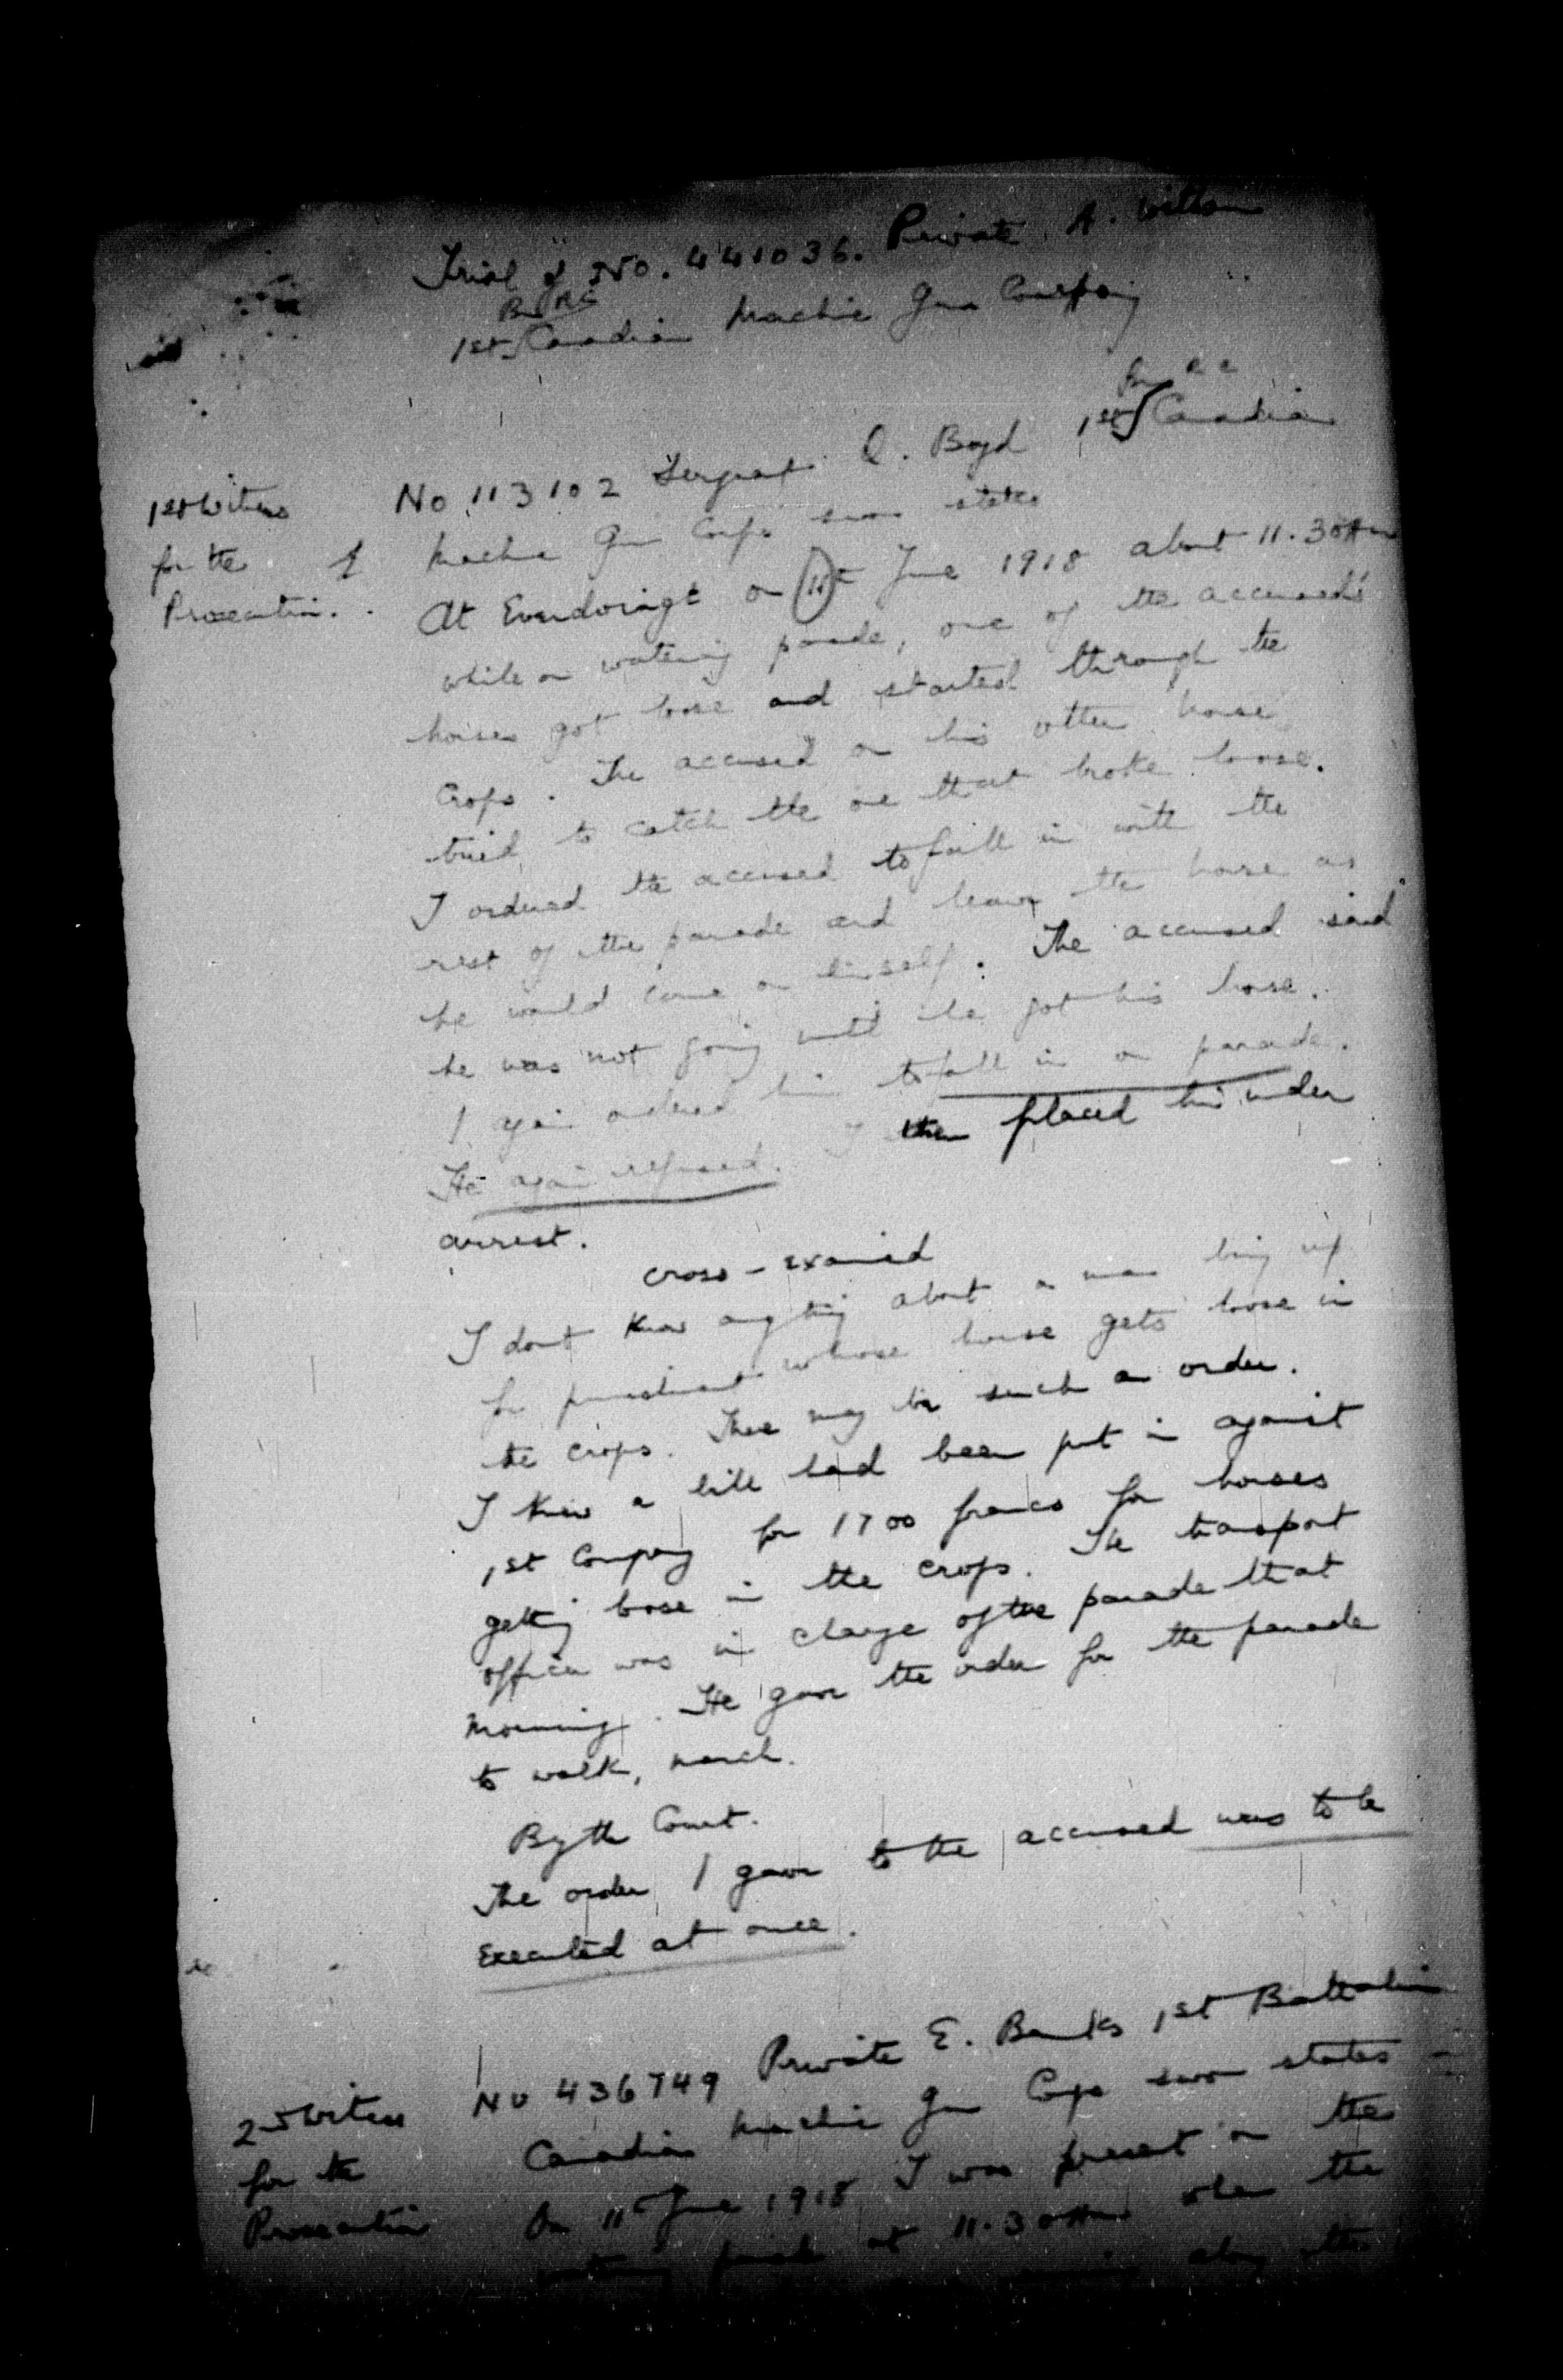 Trial of No. 441036. Private A. Wilson
Bn
1st Canadian Machine Gun Company
Bn
1st Witness
for the
Prosecution.
No 113102 Sergeant Q. Boyd 1st Canadian
Machine Gun Corps sworn states
At Everdoingt on 11th June 1918 about 11.30 AM
while on watering parade, one of the accused's
horses got loose and started through the
crops. The accused on his other horse
tried to catch the one that broke loose.
I ordered the accused to fall in with the
rest of the parade and leave the horse as
he would come on himself. The accused said
he was not going until he got his horse.
I again ordered him to fall in on parade.
He again refused. I then placed him under
arrest.
Cross-examined
I dont know anything about a man being up
for punishment whose horse gets loose in
the crops. There may be such an order.
I knew a bill had been put in against
1st Company for 1700 francs for horses
getting loose in the crops. The transport
officer was in charge of the parade that
morning. He gave the order for the parade
to walk, march.
By the Court.
The order I gave to the accused was to be
executed at once.
2nd Witness
for the
Prosecution
No 436749 Private E. Banks 1st Battalion
Canadian Machine Gun Corps sworn states
On 11th June 1918 I was present on the
watering parade at 11.30 AM when the
along the